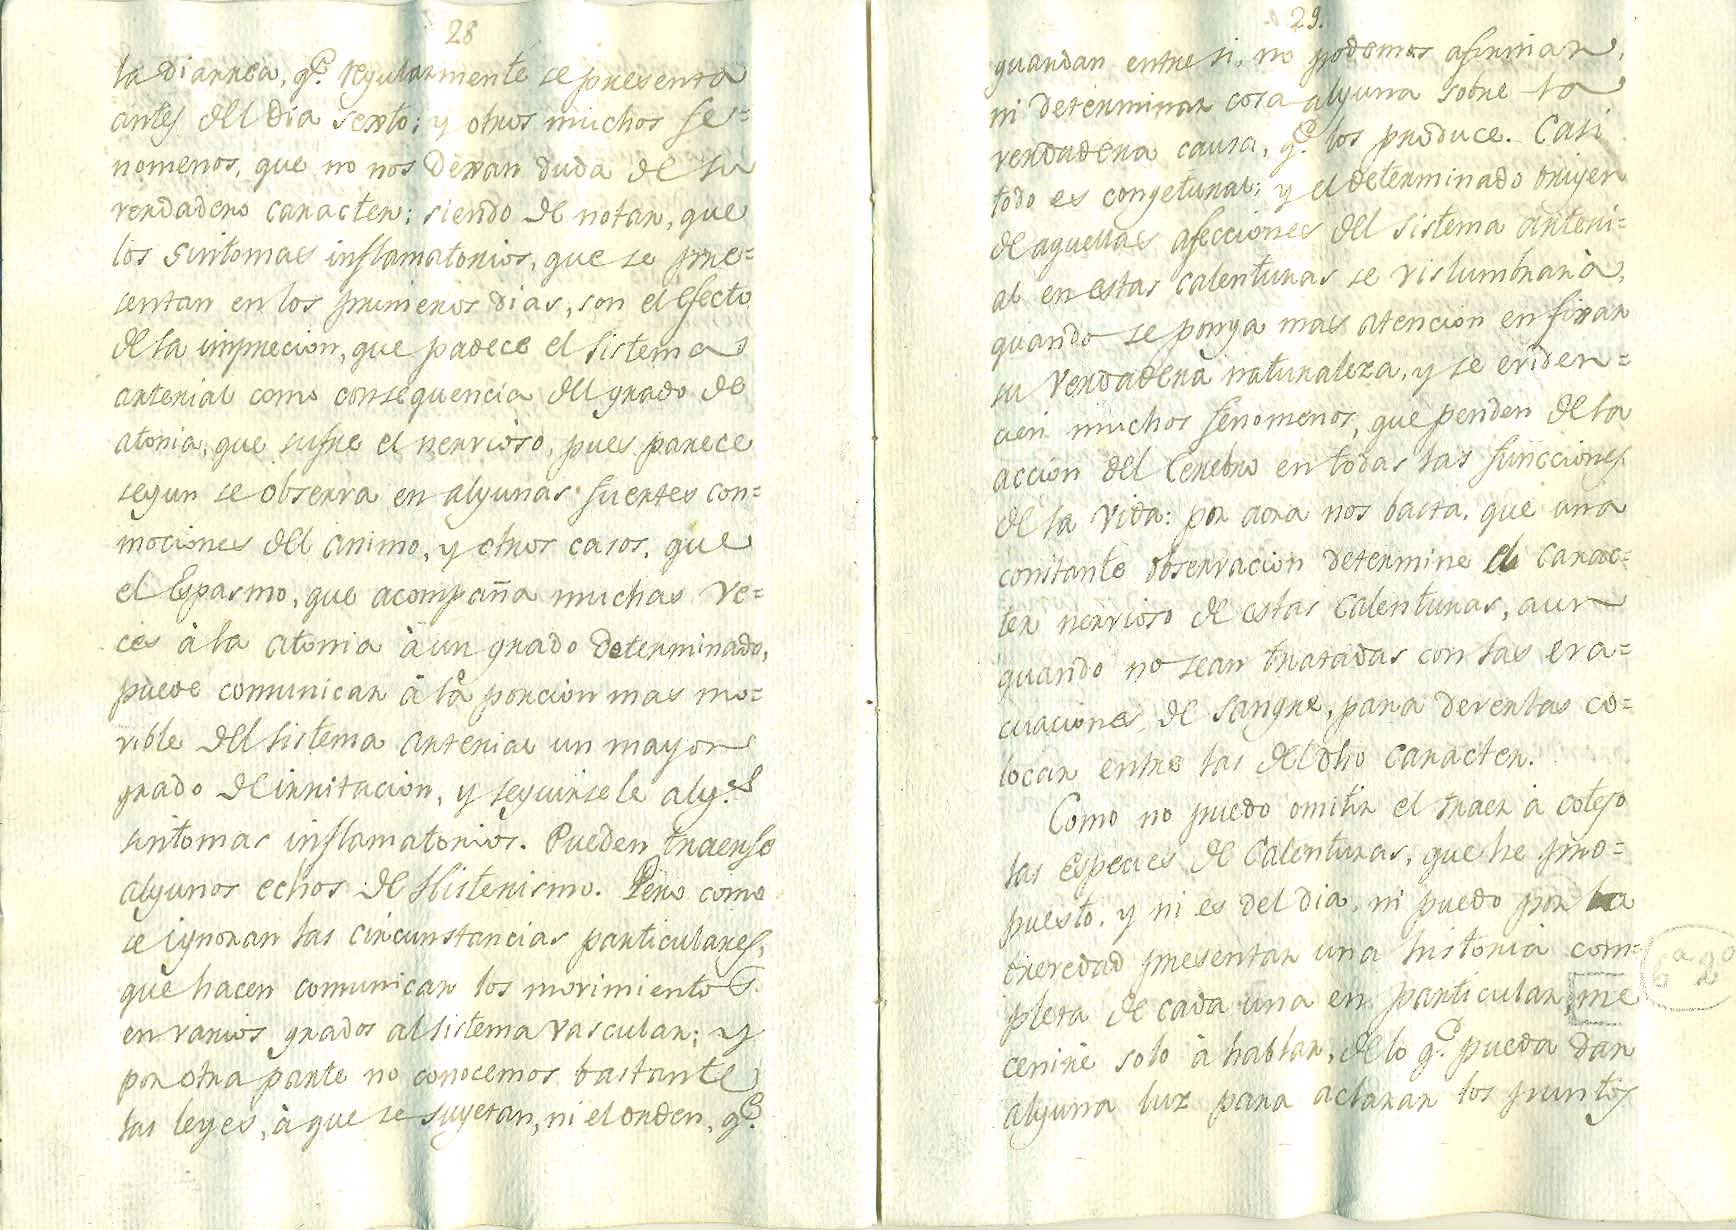 28
la diarrea, q.e regularmente se presenta
antes del dia sexto; y otros muchos fe=
nomenos, que no nos dexan duda de su
verdadero caracter; siendo de notar, que
los sintomas inflamatorios, que se pre=
sentan en los primeros dias, son el efecto
de la imprecion, que padece el sistema
arterial como consequencia del grado de
atonia, que sufre el nervioso, pues parece
segun se observa en algunas fuertes con=
mociones del animo, y otros casos, que
el Espasmo, que acompaña muchas ve=
ces à la atonia à un grado determinado,
puede comunicar à la porcion mas mo=
vible del sistema arterial un mayor
grado de irritacion, y seguirsele alg.s
sintomas inflamatorios. Pueden traerse
algunos echos de Histerismo. Pero como
se ignoran las circunstancias particulares,
que hacen comunicar los movimientos
en varios grados al sistema vascular; y
por otra parte no conocemos bastante
las leyes, à que se sugetan, ni el orden, q.e
29.
guardan entre si, no podemos afirmar,
ni determinar cosa alguna sobre la
verdadera causa, q.e los produce. Casi
todo es congetural; y el determinado origen
de aquellas afecciones del sistema arteri=
al en estas calenturas se vislumbrarà,
quando se ponga mas atencion en fixar
su verdadera naturaleza, y se eviden=
cien muchos fenomenos, que penden de la
accion del Cerebro en todas las funcciones
de la vida: por aora nos basta, que una
constante observacion determine el carac=
ter nervioso de estas calenturas, aun
quando no sean tratadas con las eva=
cuaciones de sangre, para deverlas co=
locar entre las del dho caracter.
Como no puedo omitir el traer à cotejo
las especies de Calenturas, que he pro=
puesto, y ni es del dia, ni puedo por la
brevedad presentar una historia com=
pleta de cada una en particular, me
ceñire solo à hablar, de lo q.e pueda dar
alguna luz para aclarar los puntos